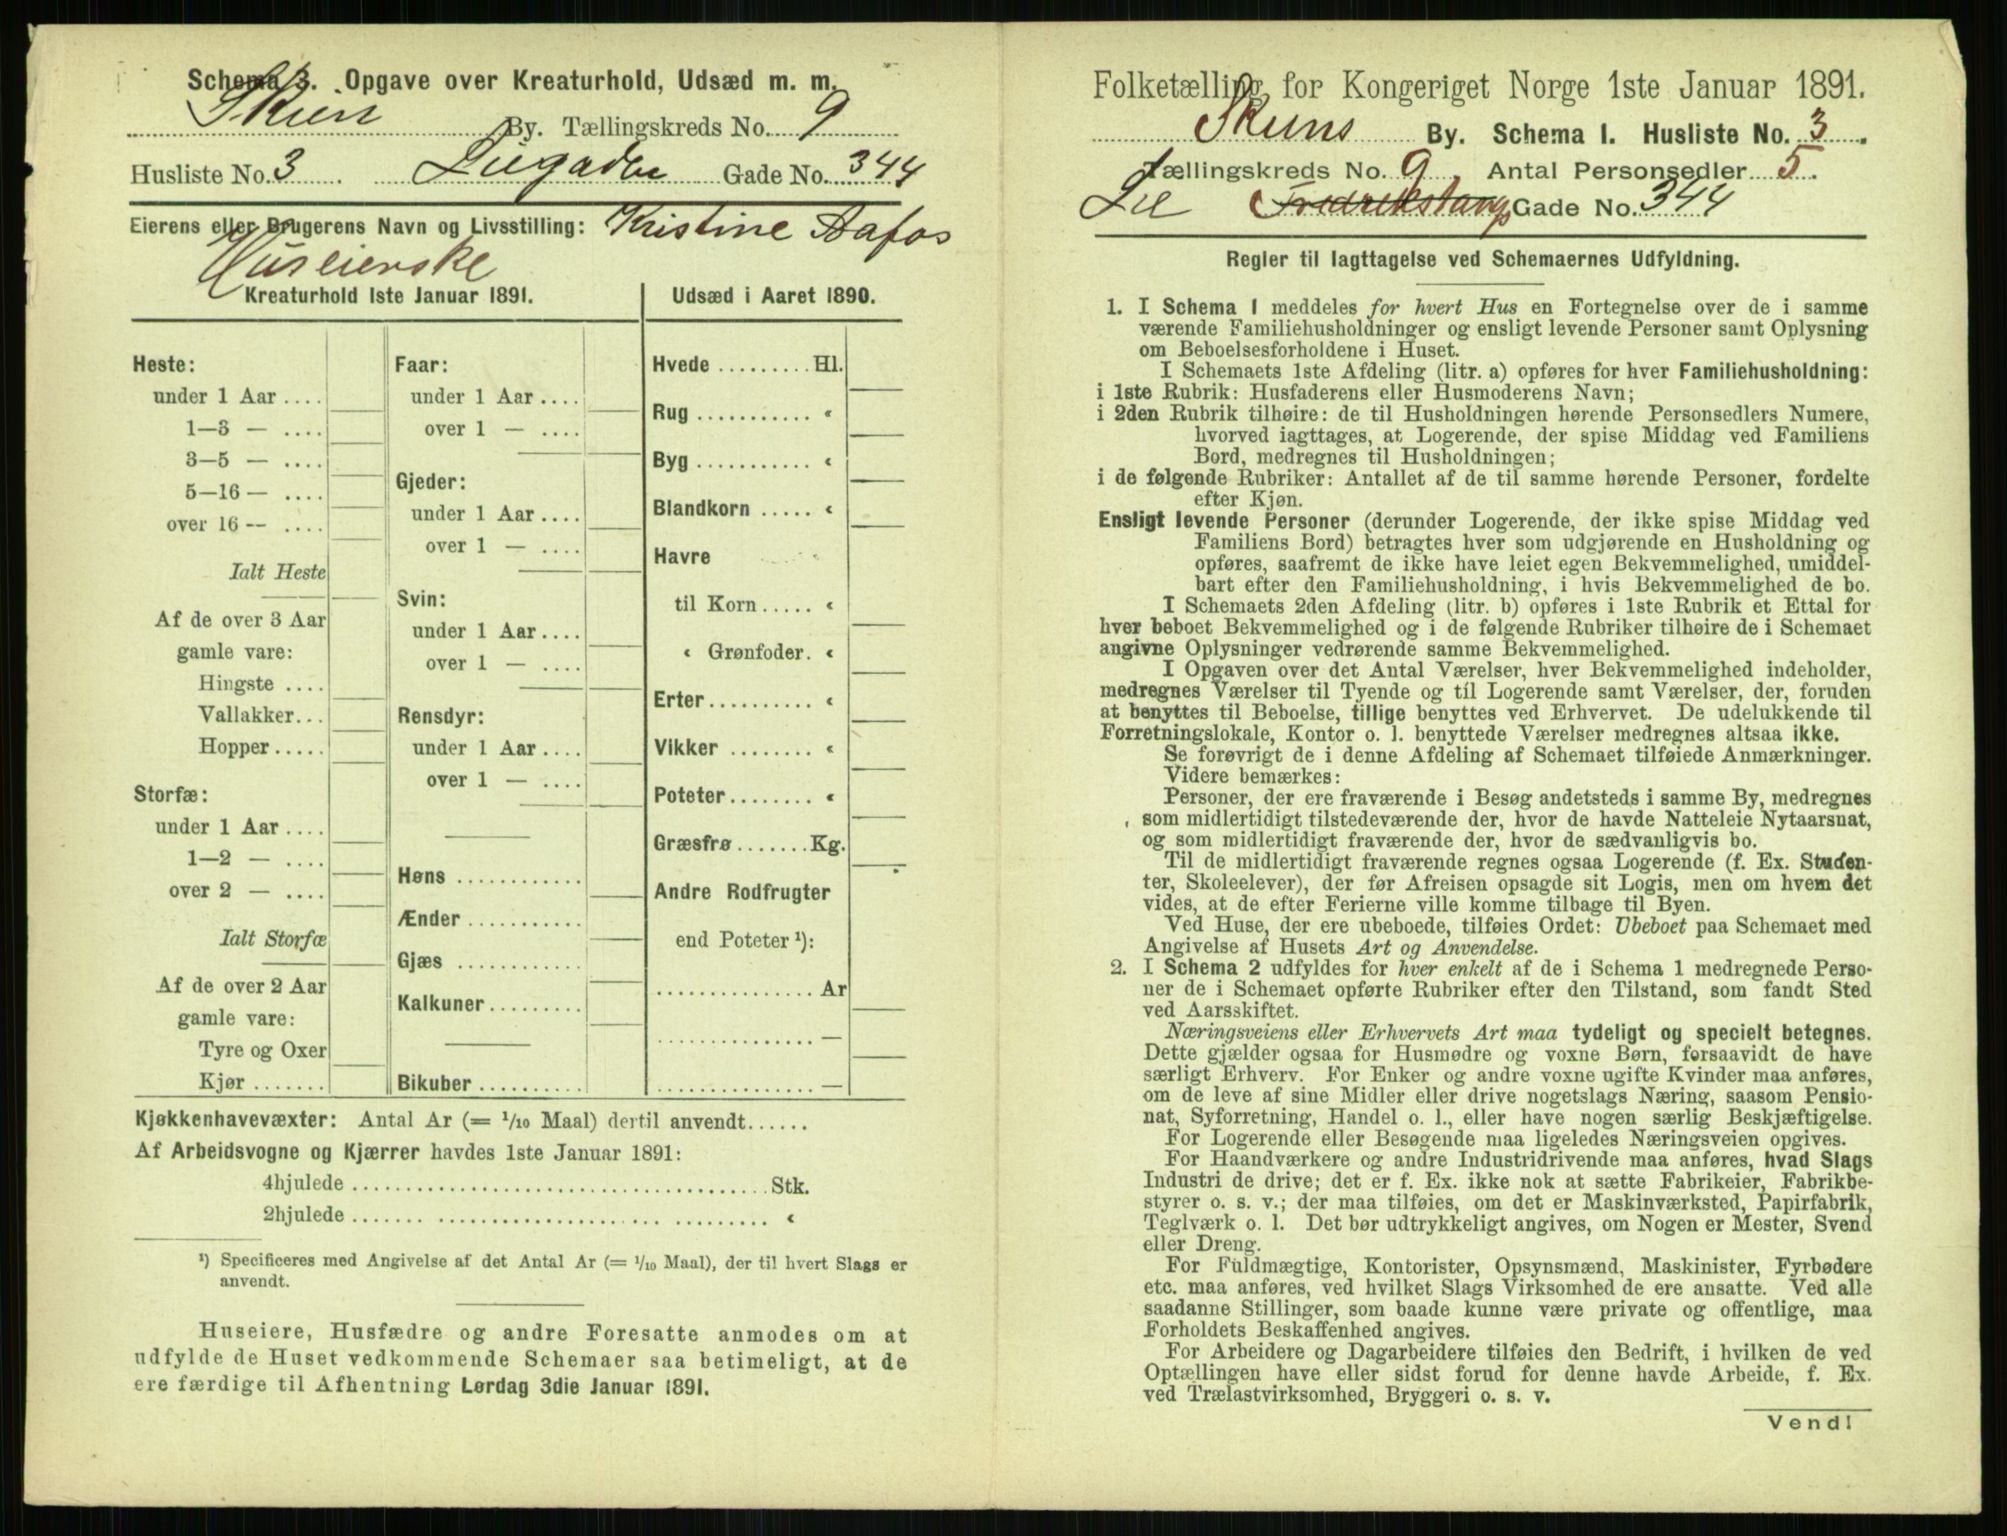 Schema 3. Opgave over Kreaturhold, Udsæd m. m.
Skien By. Tællingskreds No. 9
Husliste No. 3 Liegaden Gade No. 344
Eierens eller Brugerens Navn og Livsstilling: Kristine Aafos
Huseierske
Kreaturhold 1ste Januar 1891.
Heste:
under 1 Aar ....
1—3 — ....
3—5 — ....
5—16 — ....
over 16 -- ....
Ialt Heste
Af de over 3 Aar
gamle vare:
Hingste ....
Vallakker...
Hopper .....
Storfæ:
under 1 Aar ....
1—2 — ....
over 2 — ....
Ialt Storfæ
Af de over 2 Aar
gamle vare:
Tyre og Oxer
Kjør .......
Faar:
under 1 Aar ....
over 1 — ....
Gjeder:
under 1 Aar ....
over 1 — ....
Svin:
under 1 Aar ....
over 1 — ....
Rensdyr:
under 1 Aar ....
over 1 — ....
Høns ............
Ænder ...........
Gjæs ............
Kalkuner.........
Bikuber ..........
Udsæd i Aaret 1890.
Hvede ......... Hl.
Rug ........... «
Byg ........... «
Blandkorn ..... «
Havre
til Korn ..... «
« Grønfoder. «
Erter.......... «
Vikker ........ «
Poteter........ «
Græsfrø ....... Kg.
Andre Rodfrugter
end Poteter ¹):
............... Ar
............... —
............... —
Kjøkkenhavevæxter: Antal Ar (= 1/10 Maal) dertil anvendt......
Af Arbeidsvogne og Kjærrer havdes 1ste Januar 1891:
4hjulede ...................................... Stk.
2hjulede ...................................... «
¹) Specificeres med Angivelse af det Antal Ar (= 1/10 Maal), der til hvert Slags er
anvendt.
Huseiere, Husfædre og andre Foresatte anmodes om at
udfylde de Huset vedkommende Schemaer saa betimeligt, at de
ere færdige til Afhentning Lørdag 3die Januar 1891.
Folketælling for Kongeriget Norge 1ste Januar 1891.
Skiens By. Schema 1. Husliste No. 3
Tællingskreds No. 9. Antal Personsedler 5.
Lie Fredrikstangs Gade No. 344
Regler til Iagttagelse ved Schemaernes Udfyldning.
1. I Schema 1 meddeles for hvert Hus en Fortegnelse over de i samme
værende Familiehusholdninger og ensligt levende Personer samt Oplysning
om Beboelsesforholdene i Huset.
I Schemaets 1ste Afdeling (litr. a) opføres for hver Familiehusholdning:
i 1ste Rubrik: Husfaderens eller Husmoderens Navn;
i 2den Rubrik tilhøire: de til Husholdningen hørende Personsedlers Numere,
hvorved iagttages, at Logerende, der spise Middag ved Familiens
Bord, medregnes til Husholdningen;
i de følgende Rubriker: Antallet af de til samme hørende Personer, fordelte
efter Kjøn.
Ensligt levende Personer (derunder Logerende, der ikke spise Middag ved
Familiens Bord) betragtes hver som udgjørende en Husholdning og
opføres, saafremt de ikke have leiet egen Bekvemmelighed, umiddel-
bart efter den Familiehusholdning, i hvis Bekvemmelighed de bo.
I Schemaets 2den Afdeling (litr. b) opføres i 1ste Rubrik et Ettal for
hver beboet Bekvemmelighed og i de følgende Rubriker tilhøire de i Schemaet
angivne Oplysninger vedrørende samme Bekvemmelighed.
I Opgaven over det Antal Værelser, hver Bekvemmelighed indeholder,
medregnes Værelser til Tyende og til Logerende samt Værelser, der, foruden
at benyttes til Beboelse, tillige benyttes ved Erhvervet. De udelukkende til
Forretningslokale, Kontor o. l. benyttede Værelser medregnes altsaa ikke.
Se forøvrigt de i denne Afdeling af Schemaet tilføiede Anmærkninger.
Videre bemærkes:
Personer, der ere fraværende i Besøg andetsteds i samme By, medregnes
som midlertidigt tilstedeværende der, hvor de havde Natteleie Nytaarsnat,
og som midlertidigt fraværende der, hvor de sædvanligvis bo.
Til de midlertidigt fraværende regnes ogsaa Logerende (f. Ex. Studen-
ter, Skoleelever), der før Afreisen opsagde sit Logis, men om hvem det
vides, at de efter Ferierne ville komme tilbage til Byen.
Ved Huse, der ere ubeboede, tilføies Ordet: Ubeboet paa Schemaet med
Angivelse af Husets Art og Anvendelse.
2. I Schema 2 udfyldes for hver enkelt af de i Schema 1 medregnede Perso-
ner de i Schemaet opførte Rubriker efter den Tilstand, som fandt Sted
ved Aarsskiftet.
Næringsveiens eller Erhvervets Art maa tydeligt og specielt betegnes.
Dette gjælder ogsaa for Husmødre og voxne Børn, forsaavidt de have
særligt Erhverv. For Enker og andre voxne ugifte Kvinder maa anføres,
om de leve af sine Midler eller drive nogetslags Næring, saasom Pensio-
nat, Syforretning, Handel o. l., eller have nogen særlig Beskjæftigelse.
For Logerende eller Besøgende maa ligeledes Næringsveien opgives.
For Haandværkere og andre Industridrivende maa anføres, hvad Slags
Industri de drive; det er f. Ex. ikke nok at sætte Fabrikeier, Fabrikbe-
styrer o. s. v.; der maa tilføies, om det er Maskinværksted, Papirfabrik,
Teglværk o. l. Det bør udtrykkeligt angives, om Nogen er Mester, Svend
eller Dreng.
For Fuldmægtige, Kontorister, Opsynsmænd, Maskinister, Fyrbødere
etc. maa anføres, ved hvilket Slags Virksomhed de ere ansatte. Ved alle
saadanne Stillinger, som baade kunne være private og offentlige, maa
Forholdets Beskaffenhed angives.
For Arbeidere og Dagarbeidere tilføies den Bedrift, i hvilken de ved
Optællingen have eller sidst forud for denne havde Arbeide, f. Ex.
ved Trælastvirksomhed, Bryggeri o. s. v.
Vend!